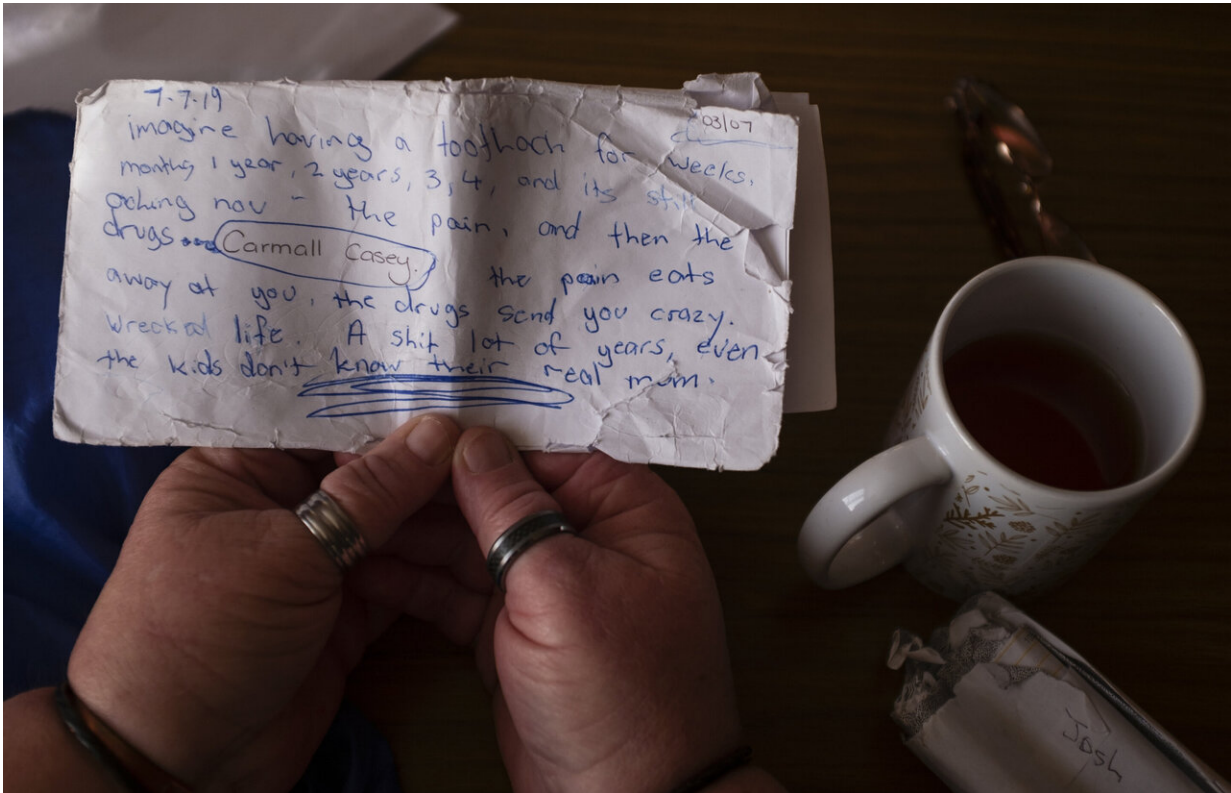 7.7.19
03/07
imagine having a toothach for weeks,
months, 1 year, 2 years, 3, 4, and its still
aching now - the pain, and then the
drugs Carmall Casey. the pain eats
away at you, the drugs send you crazy.
Wrecked life. A shit lot of years, even
the kids don't know their real mum.
Josh